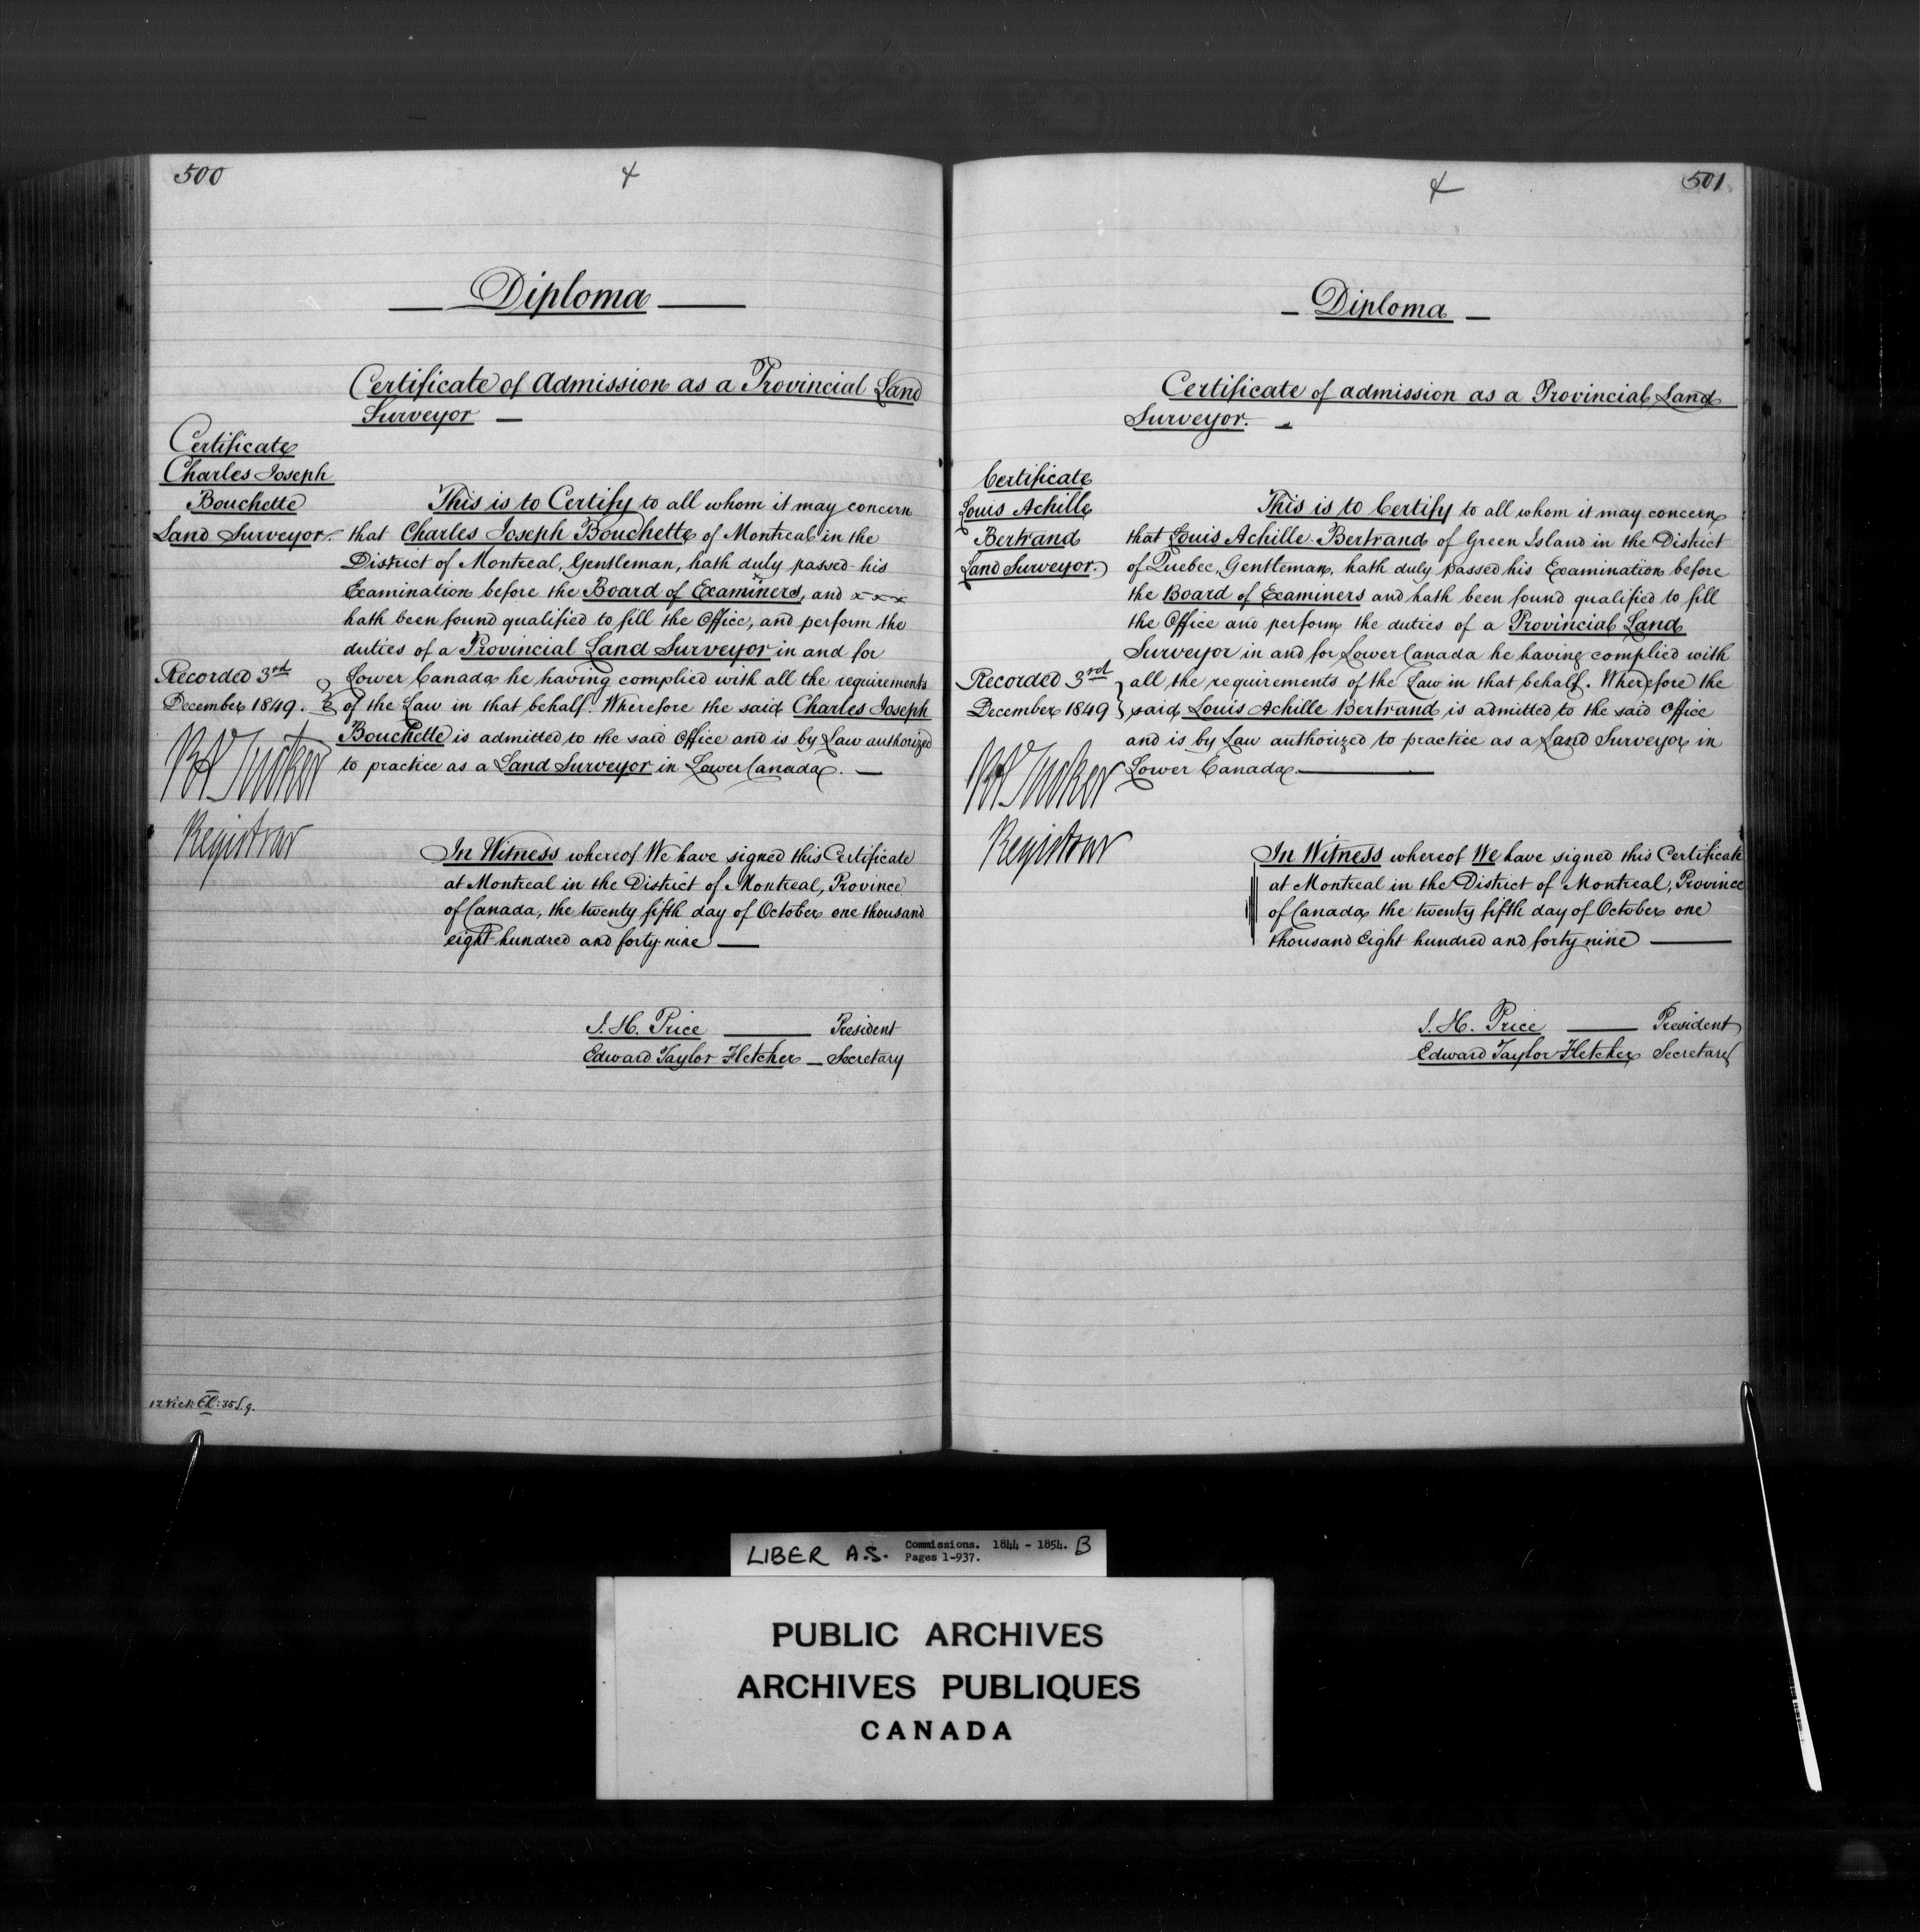 500
Diploma
Certificate of Admission as a Provincial Land
Surveyor
Certificate
Charles Joseph
Bouchette
Land Surveyor.
This is to Certify to all whom it may concern
that Charles Joseph Bouchette of Montreal in the
District of Montreal, Gentleman, hath duly passed his
Examination before the Board of Examiners, and x x x
hath been found qualified to fill the Office, and perform the
duties of a Provincial Land Surveyor in and for
Lower Canada he having complied with all the requirements
of the Law in that behalf. Wherefore the said Charles Joseph
Bouchette is admitted to the said Office and is by Law authorized
to practice as a Land Surveyor in Lower Canada.
Recorded 3rd
December 1849.
R A Tucker
Registrar
In Witness whereof We have signed this Certificate
at Montreal in the District of Montreal, Province
of Canada, the twenty fifth day of October one thousand
eight hundred and forty nine
J. H. Price President
Edward Taylor Fletcher Secretary
12 Vict: Cl: 35 S. 9.
501
Diploma
Certificate of admission as a Provincial Land
Surveyor.
Certificate
Louis Achille
Bertrand
Land Surveyor.
This is to Certify to all whom it may concern
that Louis Achille Bertrand of Green Island in the District
of Quebec, Gentleman, hath duly passed his Examination before
the Board of Examiners and hath been found qualified to fill
the Office and perform the duties of a Provincial Land
Surveyor in and for Lower Canada he having complied with
all the requirements of the Law in that behalf. Wherefore the
said Louis Achille Bertrand is admitted to the said Office
and is by Law authorized to practice as a Land Surveyor in
Lower Canada
Recorded 3rd
December 1849
R A Tucker
Registrar
In Witness whereof We have signed this Certificate
at Montreal in the District of Montreal, Province
of Canada the twenty fifth day of October one
thousand Eight hundred and forty nine
J. H. Price President
Edward Taylor Fletcher Secretary
LIBER A.S. Commissions. 1844 - 1854. B
Pages 1-937.
PUBLIC ARCHIVES
ARCHIVES PUBLIQUES
CANADA